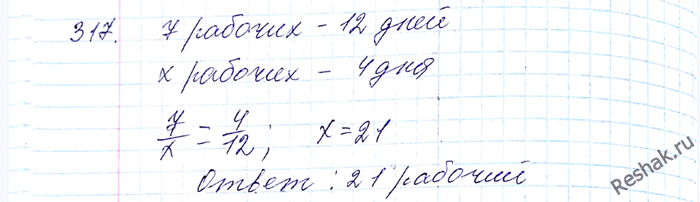 317. 7 рабочих – 12 дней
x рабочих – 4 дня
7/x = 4/12; x = 21
Ответ: 21 рабочий
Reshak.ru